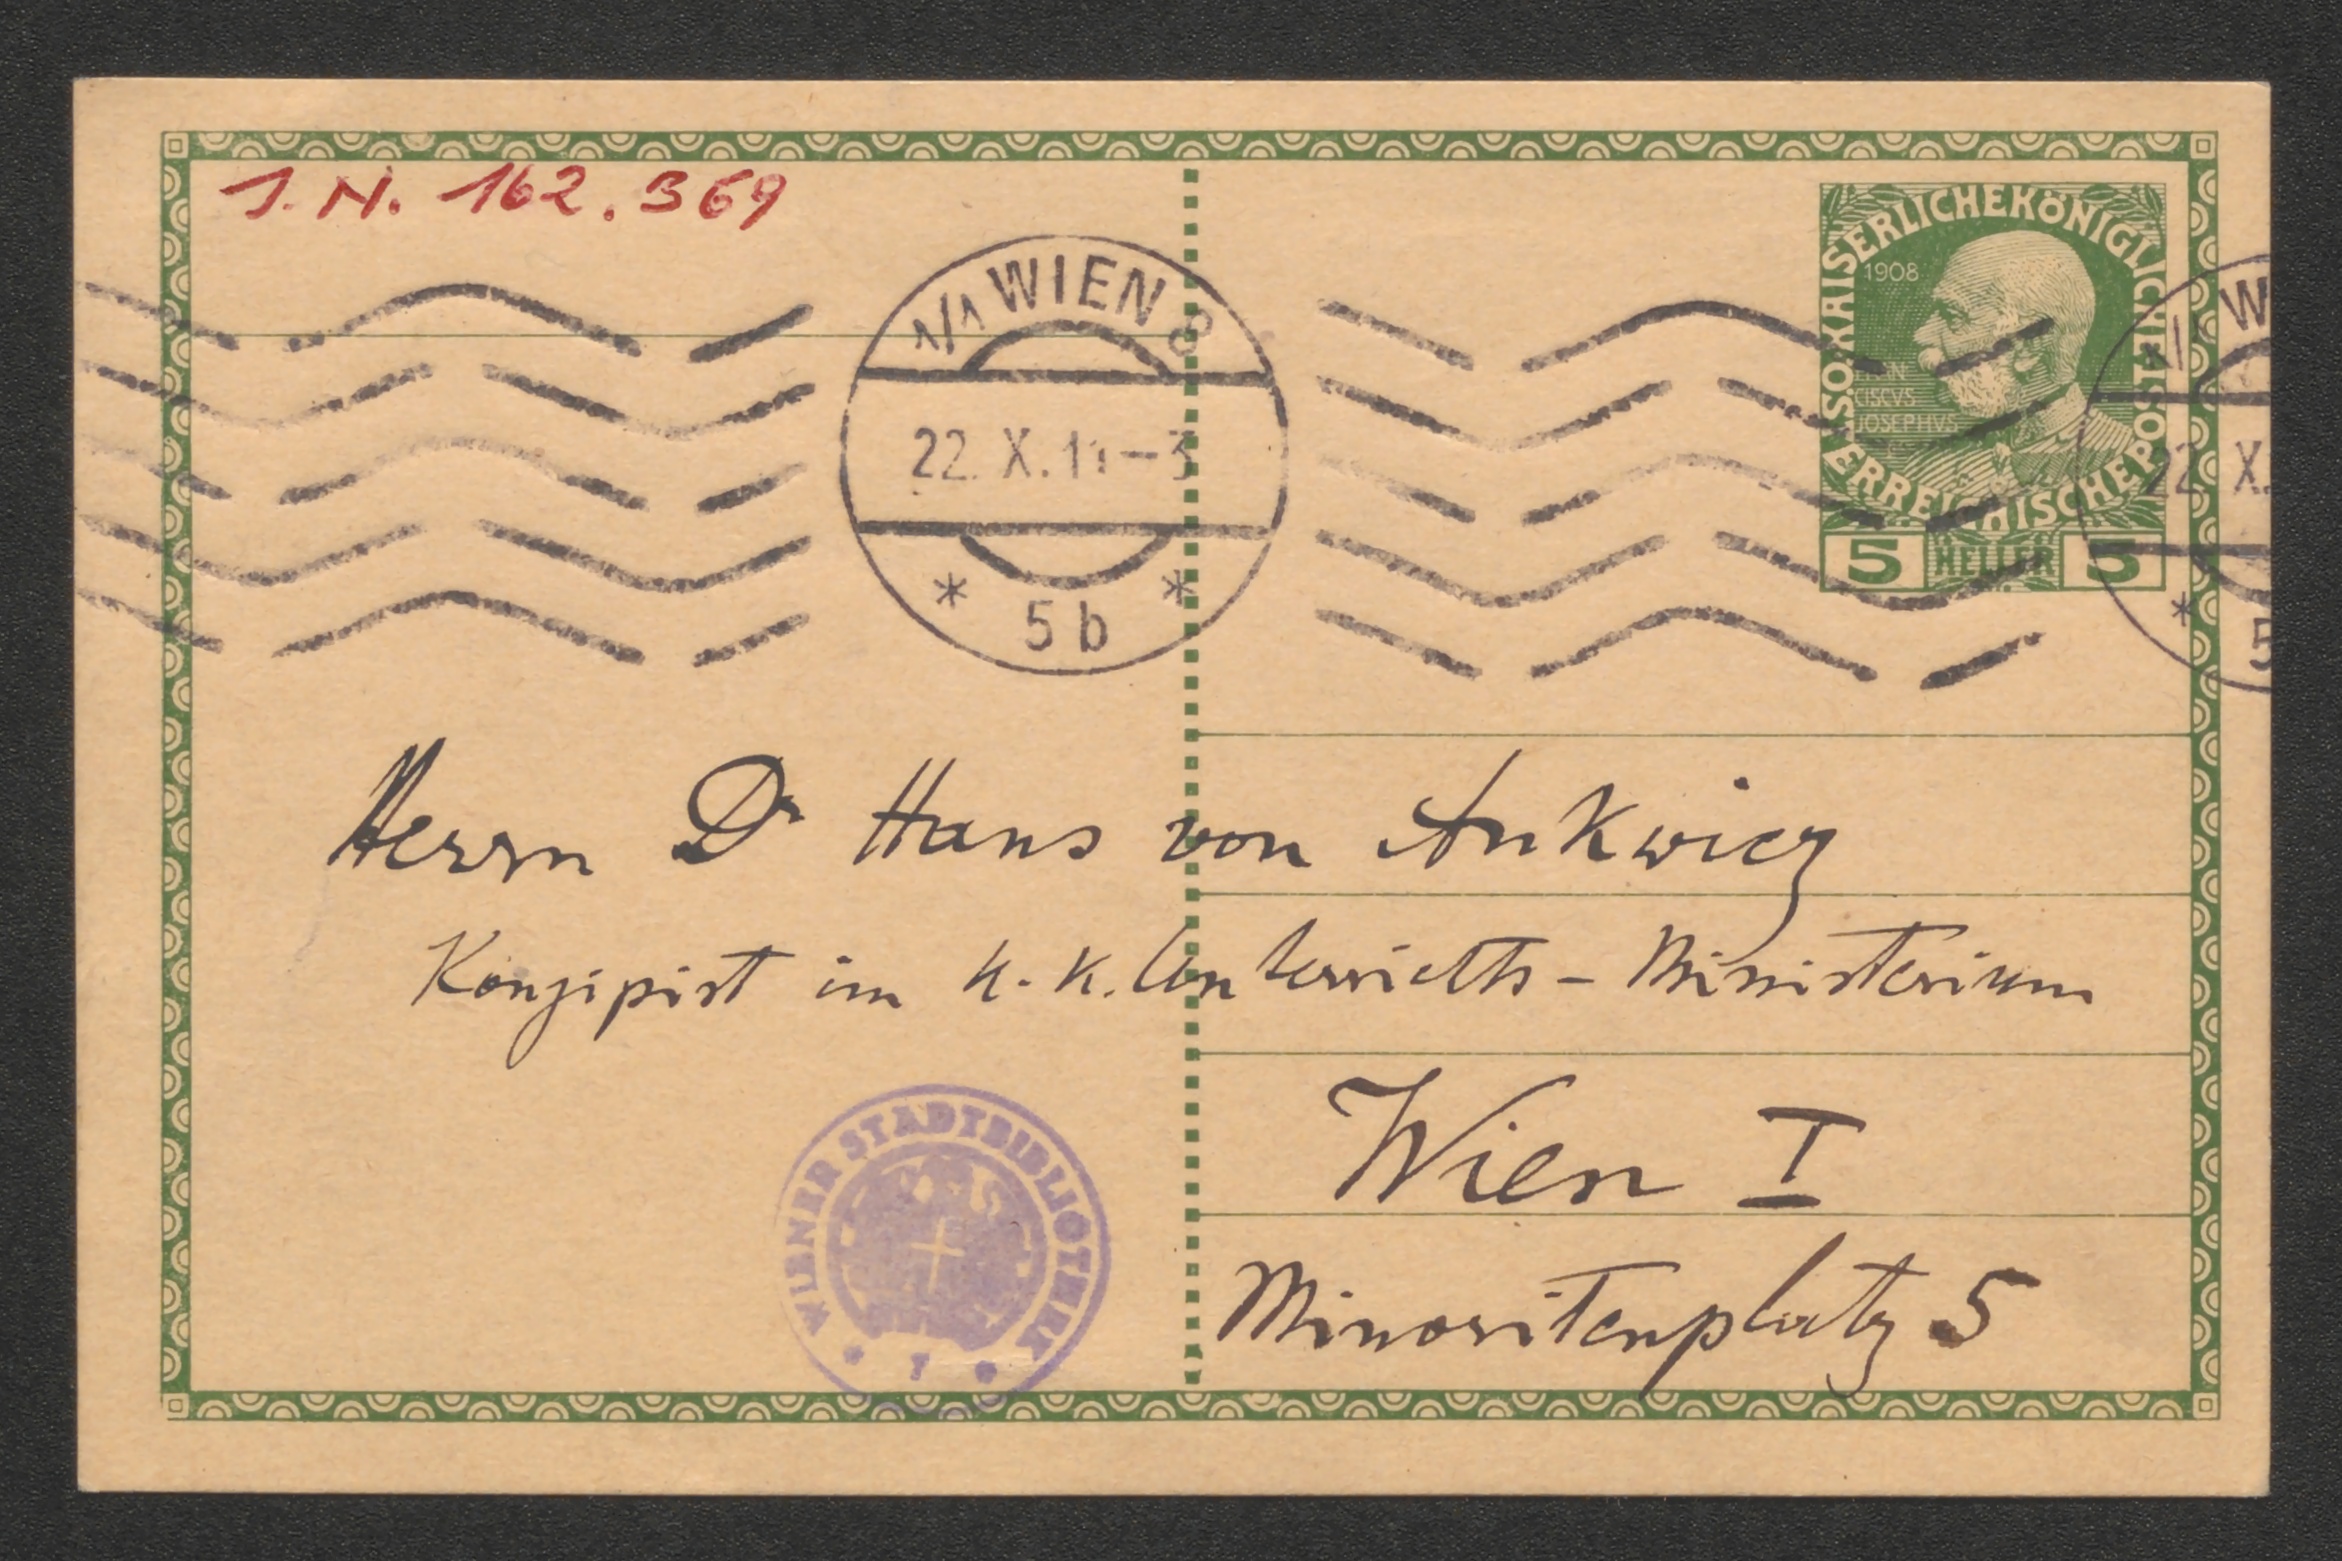 J. N. 162.369
1/1 WIEN 8
22. X. 11-3
* 5b *
KAISERLICHEKÖNIGLICHE
ÖSTERREICHISCHEPOST
1908
CISCVS
JOSEPHVS
5 HELLER 5
W
22 X.
* 5
Herrn Dr Hans von Ankwicz
Konzipist im k. k. Unterrichts-Ministerium
Wien I
Minoritenplatz 5
WIENER STADTBIBLIOTHEK